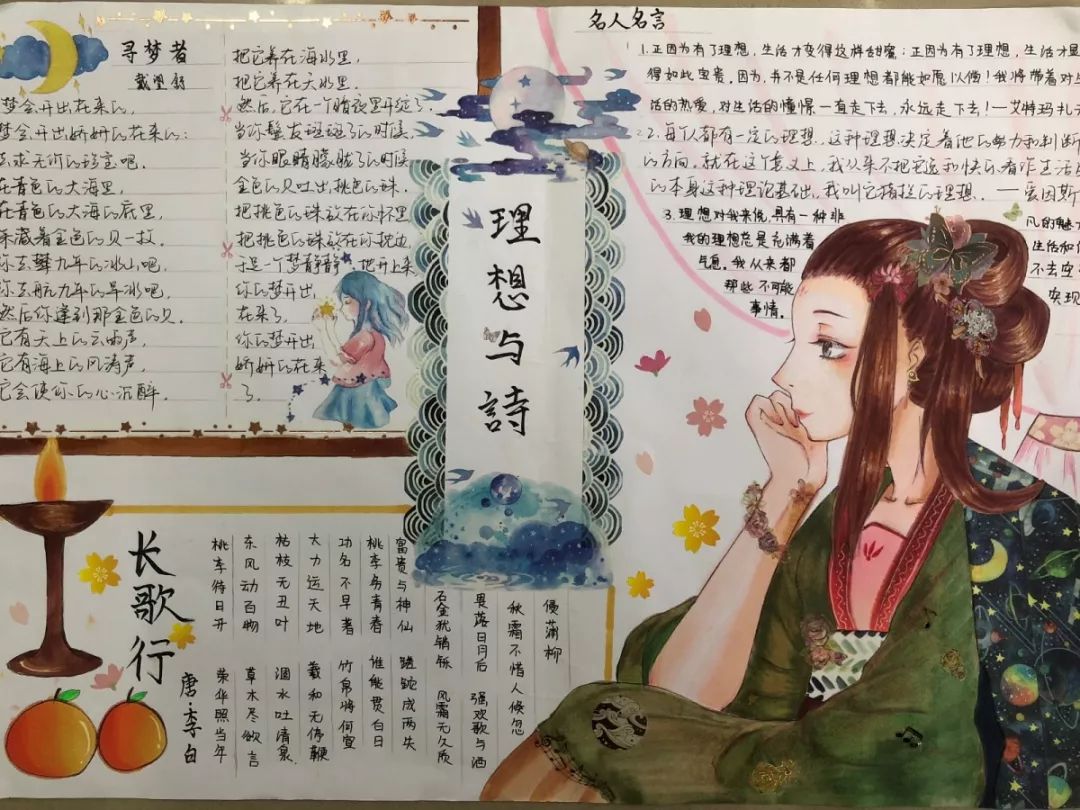 寻梦者
戴望舒
梦会开出花来的，
梦会开出娇妍的花来的：
去求无价的珍宝吧。
在青色的大海里，
在青色的大海的底里，
深藏着金色的贝一枚。
你去攀九年的冰山吧，
你去航九年的旱冰吧，
然后你逢到那金色的贝。
它有天上的云雨声，
它有海上的风涛声，
它会使你的心沉醉．
把它养在海水里，
把它养在天水里，
然后，它在一个暗夜里开绽了．
当你鬓发斑斑了的时候，
当你眼睛朦胧了的时候
金色的贝吐出桃色的珠．
把桃色的珠放在你怀里
把桃色的珠放在你枕边，
于是一个梦静静地升上来
你的梦开出
花来了，
你的梦开出
娇妍的花来
了．
理想与詩
名人名言
1.正因为有了理想，生活才变得这样甜蜜；正因为有了理想，生活才显
得如此宝贵，因为，并不是任何理想都能如愿以偿！我将带着对生
活的热爱，对生活的憧憬一直走下去，永远走下去！—艾特玛扎
2.每个人都有一定的理想，这种理想决定着他的努力和判断
的方向，就在这个意义上，我从来不把安逸和快乐看作生活
的本身这种理论基础，我叫它猪栏的理想．——爱因斯
3.理想对我来说，具有一种非
凡的魅
我的理想总是充满着
生活和
气息，我从来都
不去
那些不可能
实现
事情。
长歌行
唐·李白
桃李待日开 荣华照当年
东风动百物 草木尽欲言
枯枝无丑叶 涸水吐清泉
大力运天地 羲和无停鞭
功名不早著 竹帛将何宣
桃李务青春 谁能贳白日
富贵与神仙 蹉跎成两失
石金犹销铄 风霜无久质
畏落日月后 强欢歌与酒
秋霜不惜人 倏忽
侵蒲柳